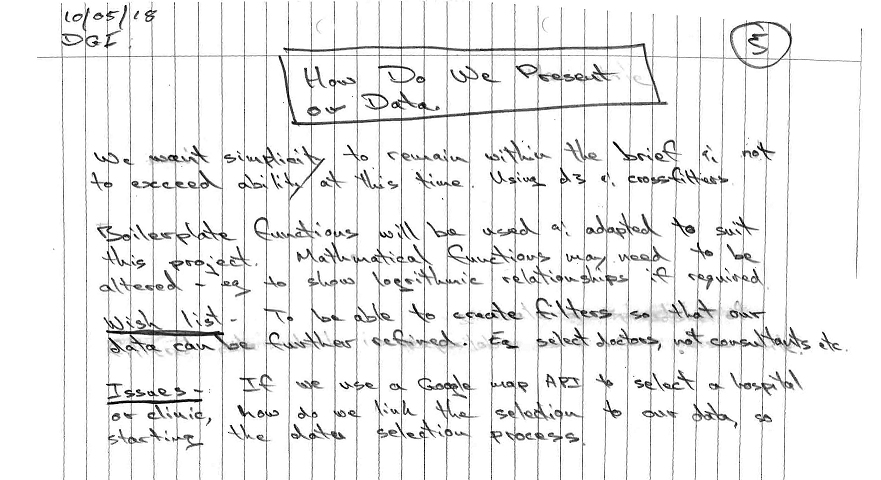 10/05/18
DGI.
5
How Do We Present
our Data.
We want simplicity to remain within the brief & not
to exceed ability at this time. Using d3 & crossfilters
Boilerplate functions will be used & adapted to suit
this project. Mathmatical functions may need to be
altered - eg to show logrithmic relationships if required
Wish list - To be able to create filters so that our
data can be further refined. Eg select doctors, not consultants etc.
Issues - If we use a Google map API to select a hospital
or clinic, how do we link the selection to our data, so
starting the data selection process.